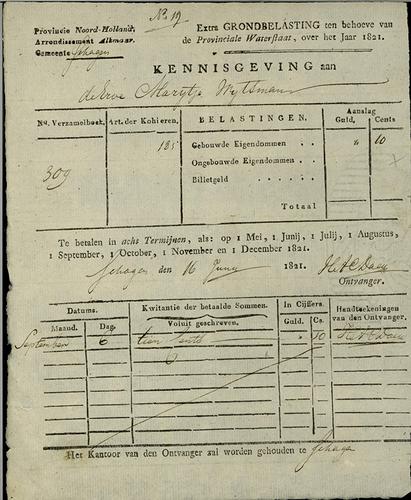 No. 19
Provincie Noord-Holland,
Arrondissement Alkmaar,
Gemeente Schagen
Extra GRONDBELASTING ten behoeve van
de Provinciale Waterstaat, over het Jaar 1821.
KENNISGEVING aan
de Erve Marijtje
No. Verzamelboek. Art. der Kohieren. BELASTINGEN. Aanslag
Guld. Cents
309 185 Gebouwde Eigendommen . . " 10
Ongebouwde Eigendommen . .
Billetgeld . . . . . .
Totaal
Te betalen in achts Termijnen, als: op 1 Mei, 1 Junij, 1 Julij, 1 Augustus,
1 September, 1 October, 1 November en 1 December 1821.
Schagen den 16 Juny 1821.
Ontvanger.
Datums. Kwitantie der betaalde Sommen. In Cijffers. Handteekeningen
van den Ontvanger.
Maand. Dag. Voluit geschreven. Guld. Cs.
September 6 tien Cents " 10
Het Kantoor van den Ontvanger zal worden gehouden te Schagen